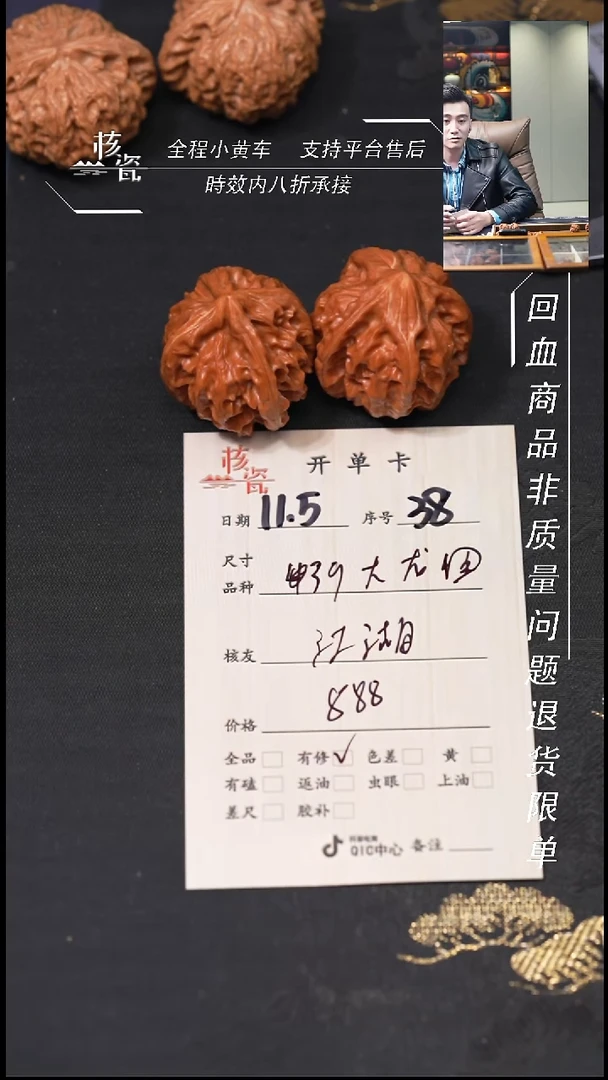 核瓷
全程小黄车 支持平台售后
時效内八折承接
回血商品非质量问题退货限单
核瓷
开单卡
日期 11.5 序号 38
尺寸
品种 39大龙
核友 江湖
价格 888
全品 有修 ✓ 色差 黄
有磕 返油 虫眼 上油
差尺 胶补
QIC中心 备注